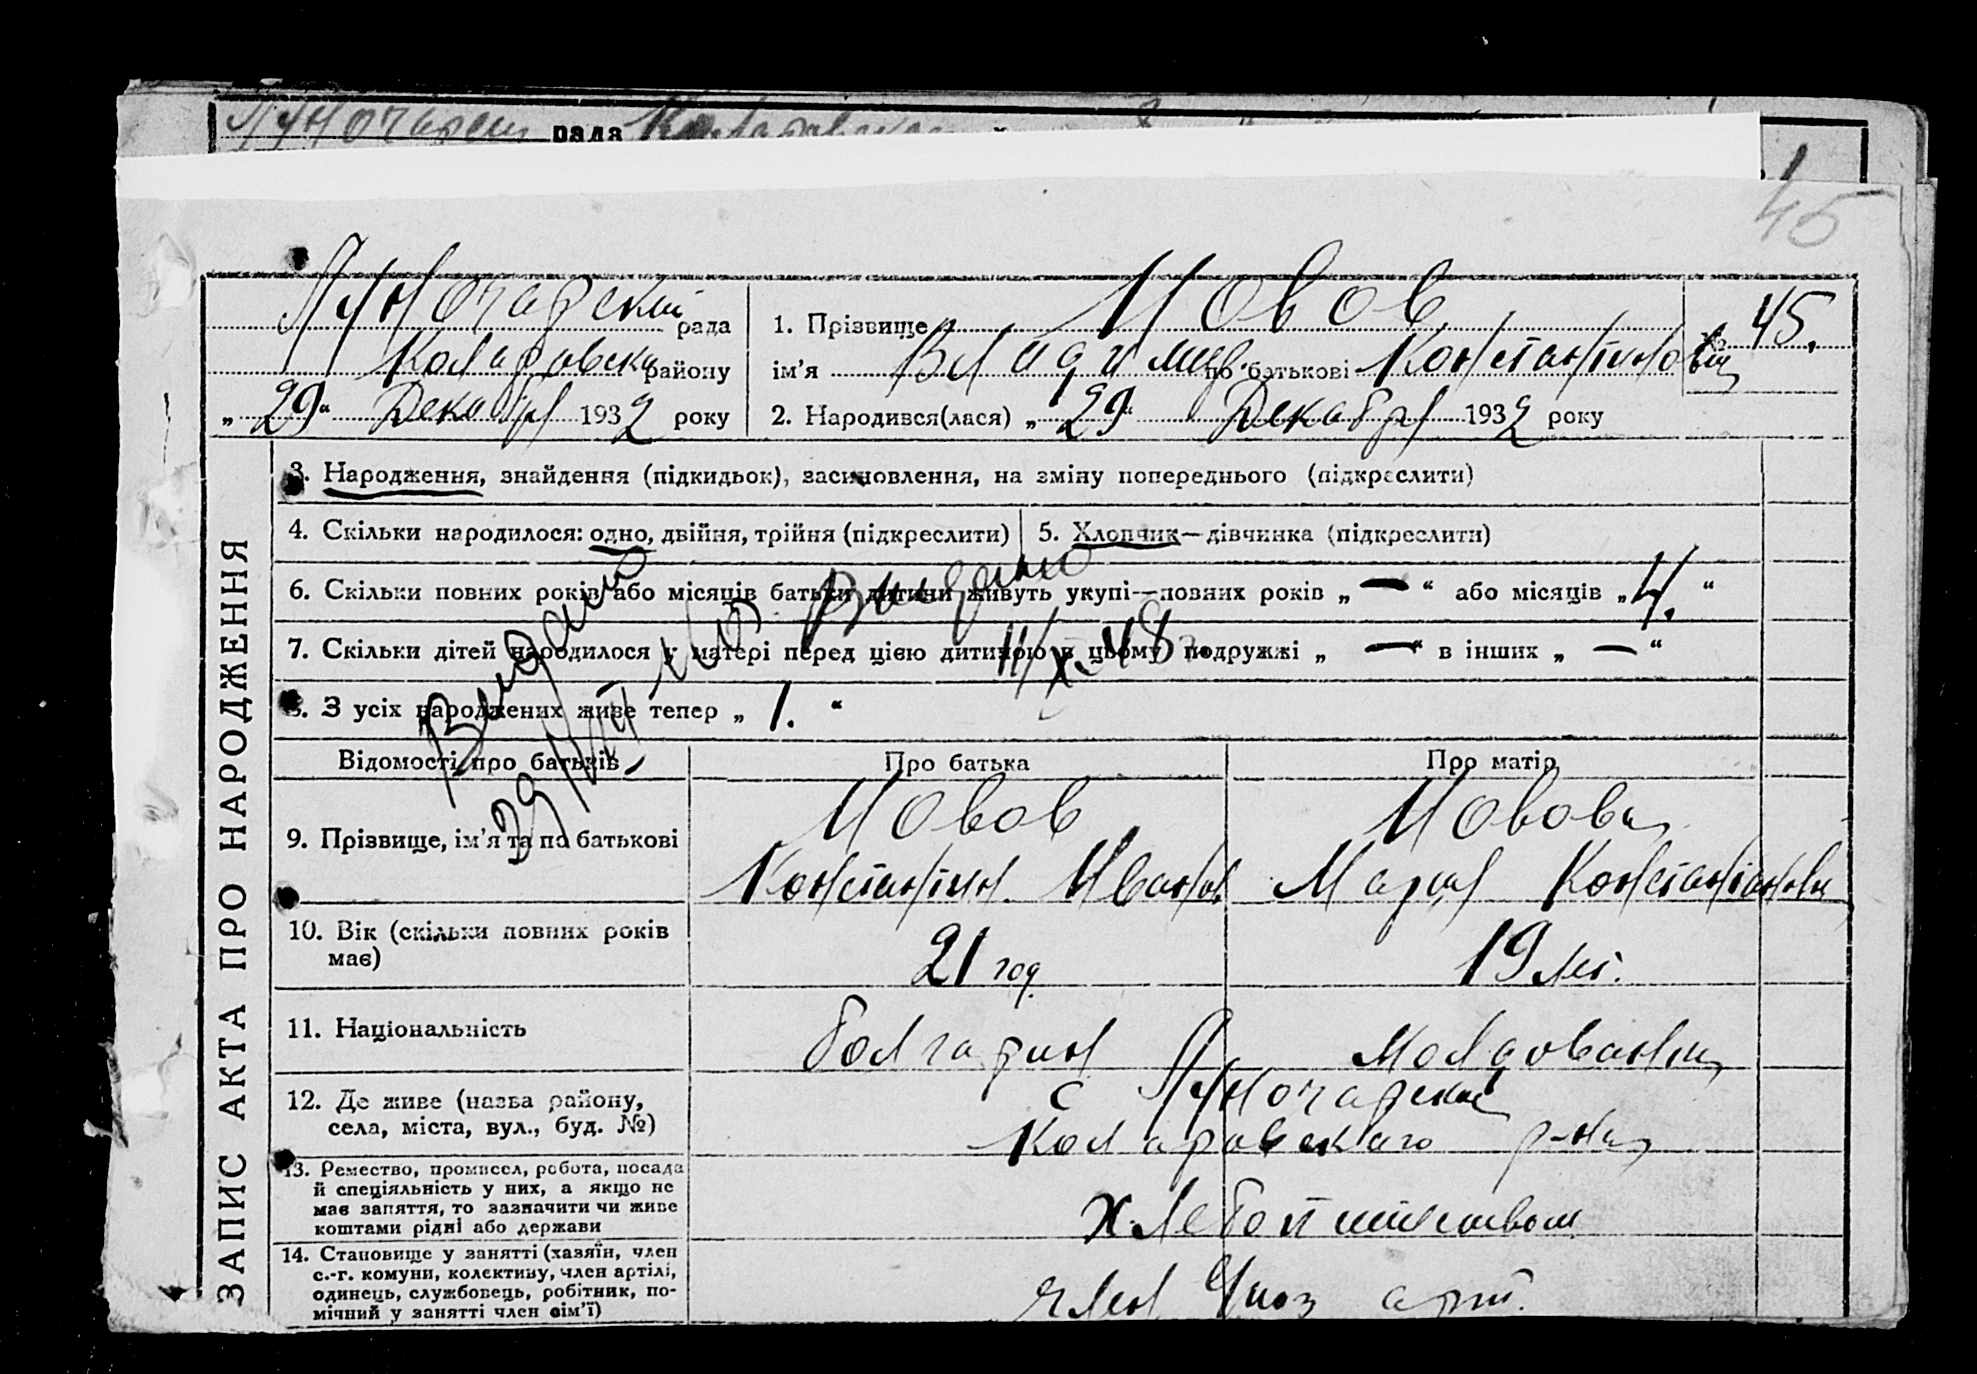 рада
45
Луночарский рада
Коларовска району
„ 29 “ Декабря 1932 року
1. Прізвище Йовов
ім’я Владимир по батькові Константинович
№ 45.
2. Народився(лася) „ 29 “ Декабря 1932 року
ЗАПИС АКТА ПРО НАРОДЖЕННЯ
3. Народження, знайдення (підкидьок), засиновлення, на зміну попереднього (підкреслити)
4. Скільки народилося: одно, двійня, трійня (підкреслити)
5. Хлопчик—дівчинка (підкреслити)
6. Скільки повних років або місяців батьки дитини живуть укупі—повних років „ — “ або місяців „ 4. “
7. Скільки дітей народилося у матері перед цією дитиною в цьому подружжі „ — “ в інших „ — “
8. З усіх народжених живе тепер „ 1. “
Видано
11/X 48
Відомості про батьків
Про батька
Про матір
9. Прізвище, ім’я та по батькові
Йовов
Константин Иванов.
Йовова
Мария Константиновна
10. Вік (скільки повних років
має)
21 год.
19 лет.
11. Національність
болгарин
молдованка
12. Де живе (назва району,
села, міста, вул., буд. №)
с Луночарский
Коларовского р-на
13. Ремество, промисел, робота, посада
й спеціяльність у них, а якщо не
має заняття, то зазначити чи живе
коштами рідні або держави
хлебопашеством
14. Становище у занятті (хазяїн, член
с.-г. комуни, колективу, член артілі,
одинець, службовець, робітник, по-
мічний у занятті член сім’ї)
член арт.